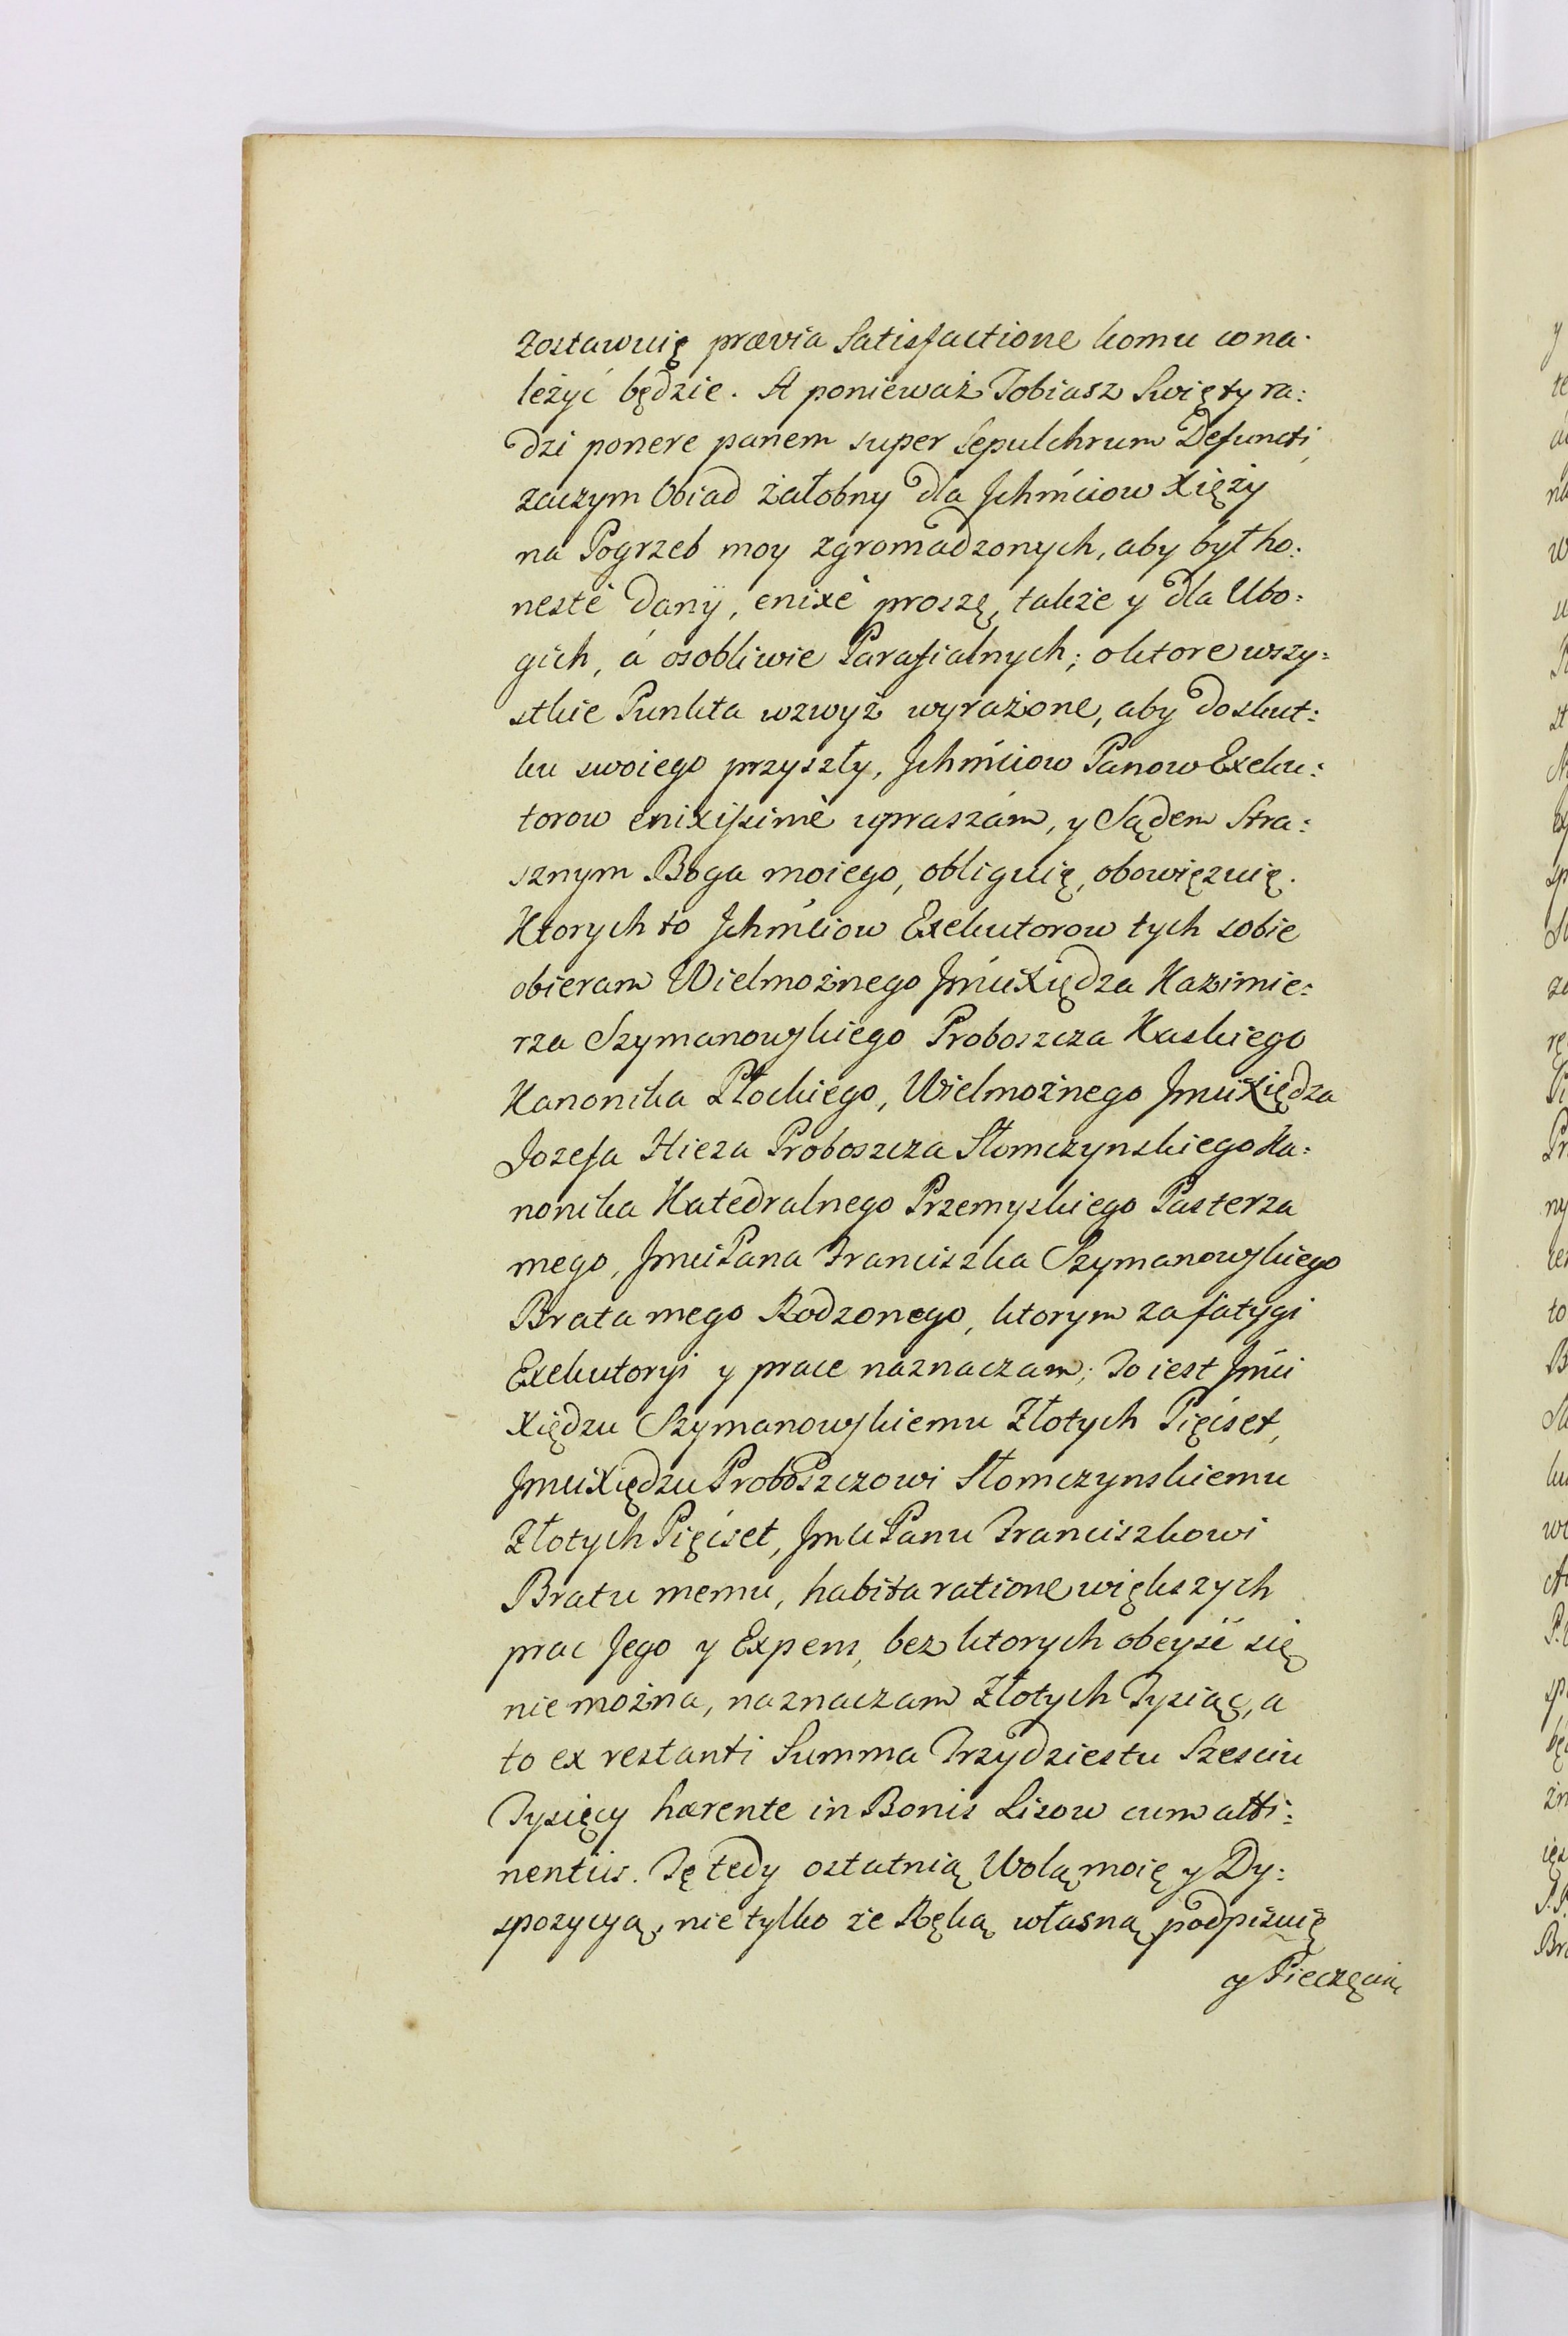 zostawuię prævia Satisfactione komu co na:
leżyć będzie. A ponieważ Tobiasz Swięty ra:
dzi ponere panem super Sepulchrum Defuncti,
zaczym Obiad żałobny dla Ichmciow Xięży
na Pogrzeb moy zgromadzonych, aby był ho:
nestè dany, enixè proszę, także y dla Ubo:
gich, á osobliwie Parafialnych; o ktore wszy:
stkie Punkta wzwyż wyrażone, aby do skut:
ku swoiego przyszły, Ichmciow Panow Exeku:
torow enixissimè upraszám, y Sądem Stra:
sznym Boga moiego, obliguię, obowięzuię.
Ktorych to Ichmciow Exekutorow tych sobie
obieram Wielmożnego Jmci Xiędza Kazimie:
rza Szymanowskiego Proboszcza Kaskiego
Kanonika Płockiego, Wielmożnego Jmci Xiędza
Jozefa Hieza Proboszcza Słomczynskiego Ka:
nonika Katedralnego Przemyskiego Pasterza
mego, Jmci Pana Franciszka Szymanowskiego
Brata mego Rodzonego, ktorym za fatygi
Exekutoryi y prace naznaczam; To iest Jmci
Xiędzu Szymanowskiemu Złotych Pięćset,
Jmci Xiędzu Proboszczowi Słomczynskiemu
Złotych Pięćset, Jmci Panu Franciszkowi
Bratu memu, habita ratione większych
prac Jego y Expens, bez ktorych obeyść się
nie można, naznaczam Złotych Tysiąc, a
to ex restanti Summa Trzydziestu Szesciu
Tysięcy hærente in Bonis Lisow cum atti:
nentiis. Tę tedy ostatnią Wolą moię y Dy:
spozycyą, nie tylko że Ręką własną podpisuię
y Pieczęcią